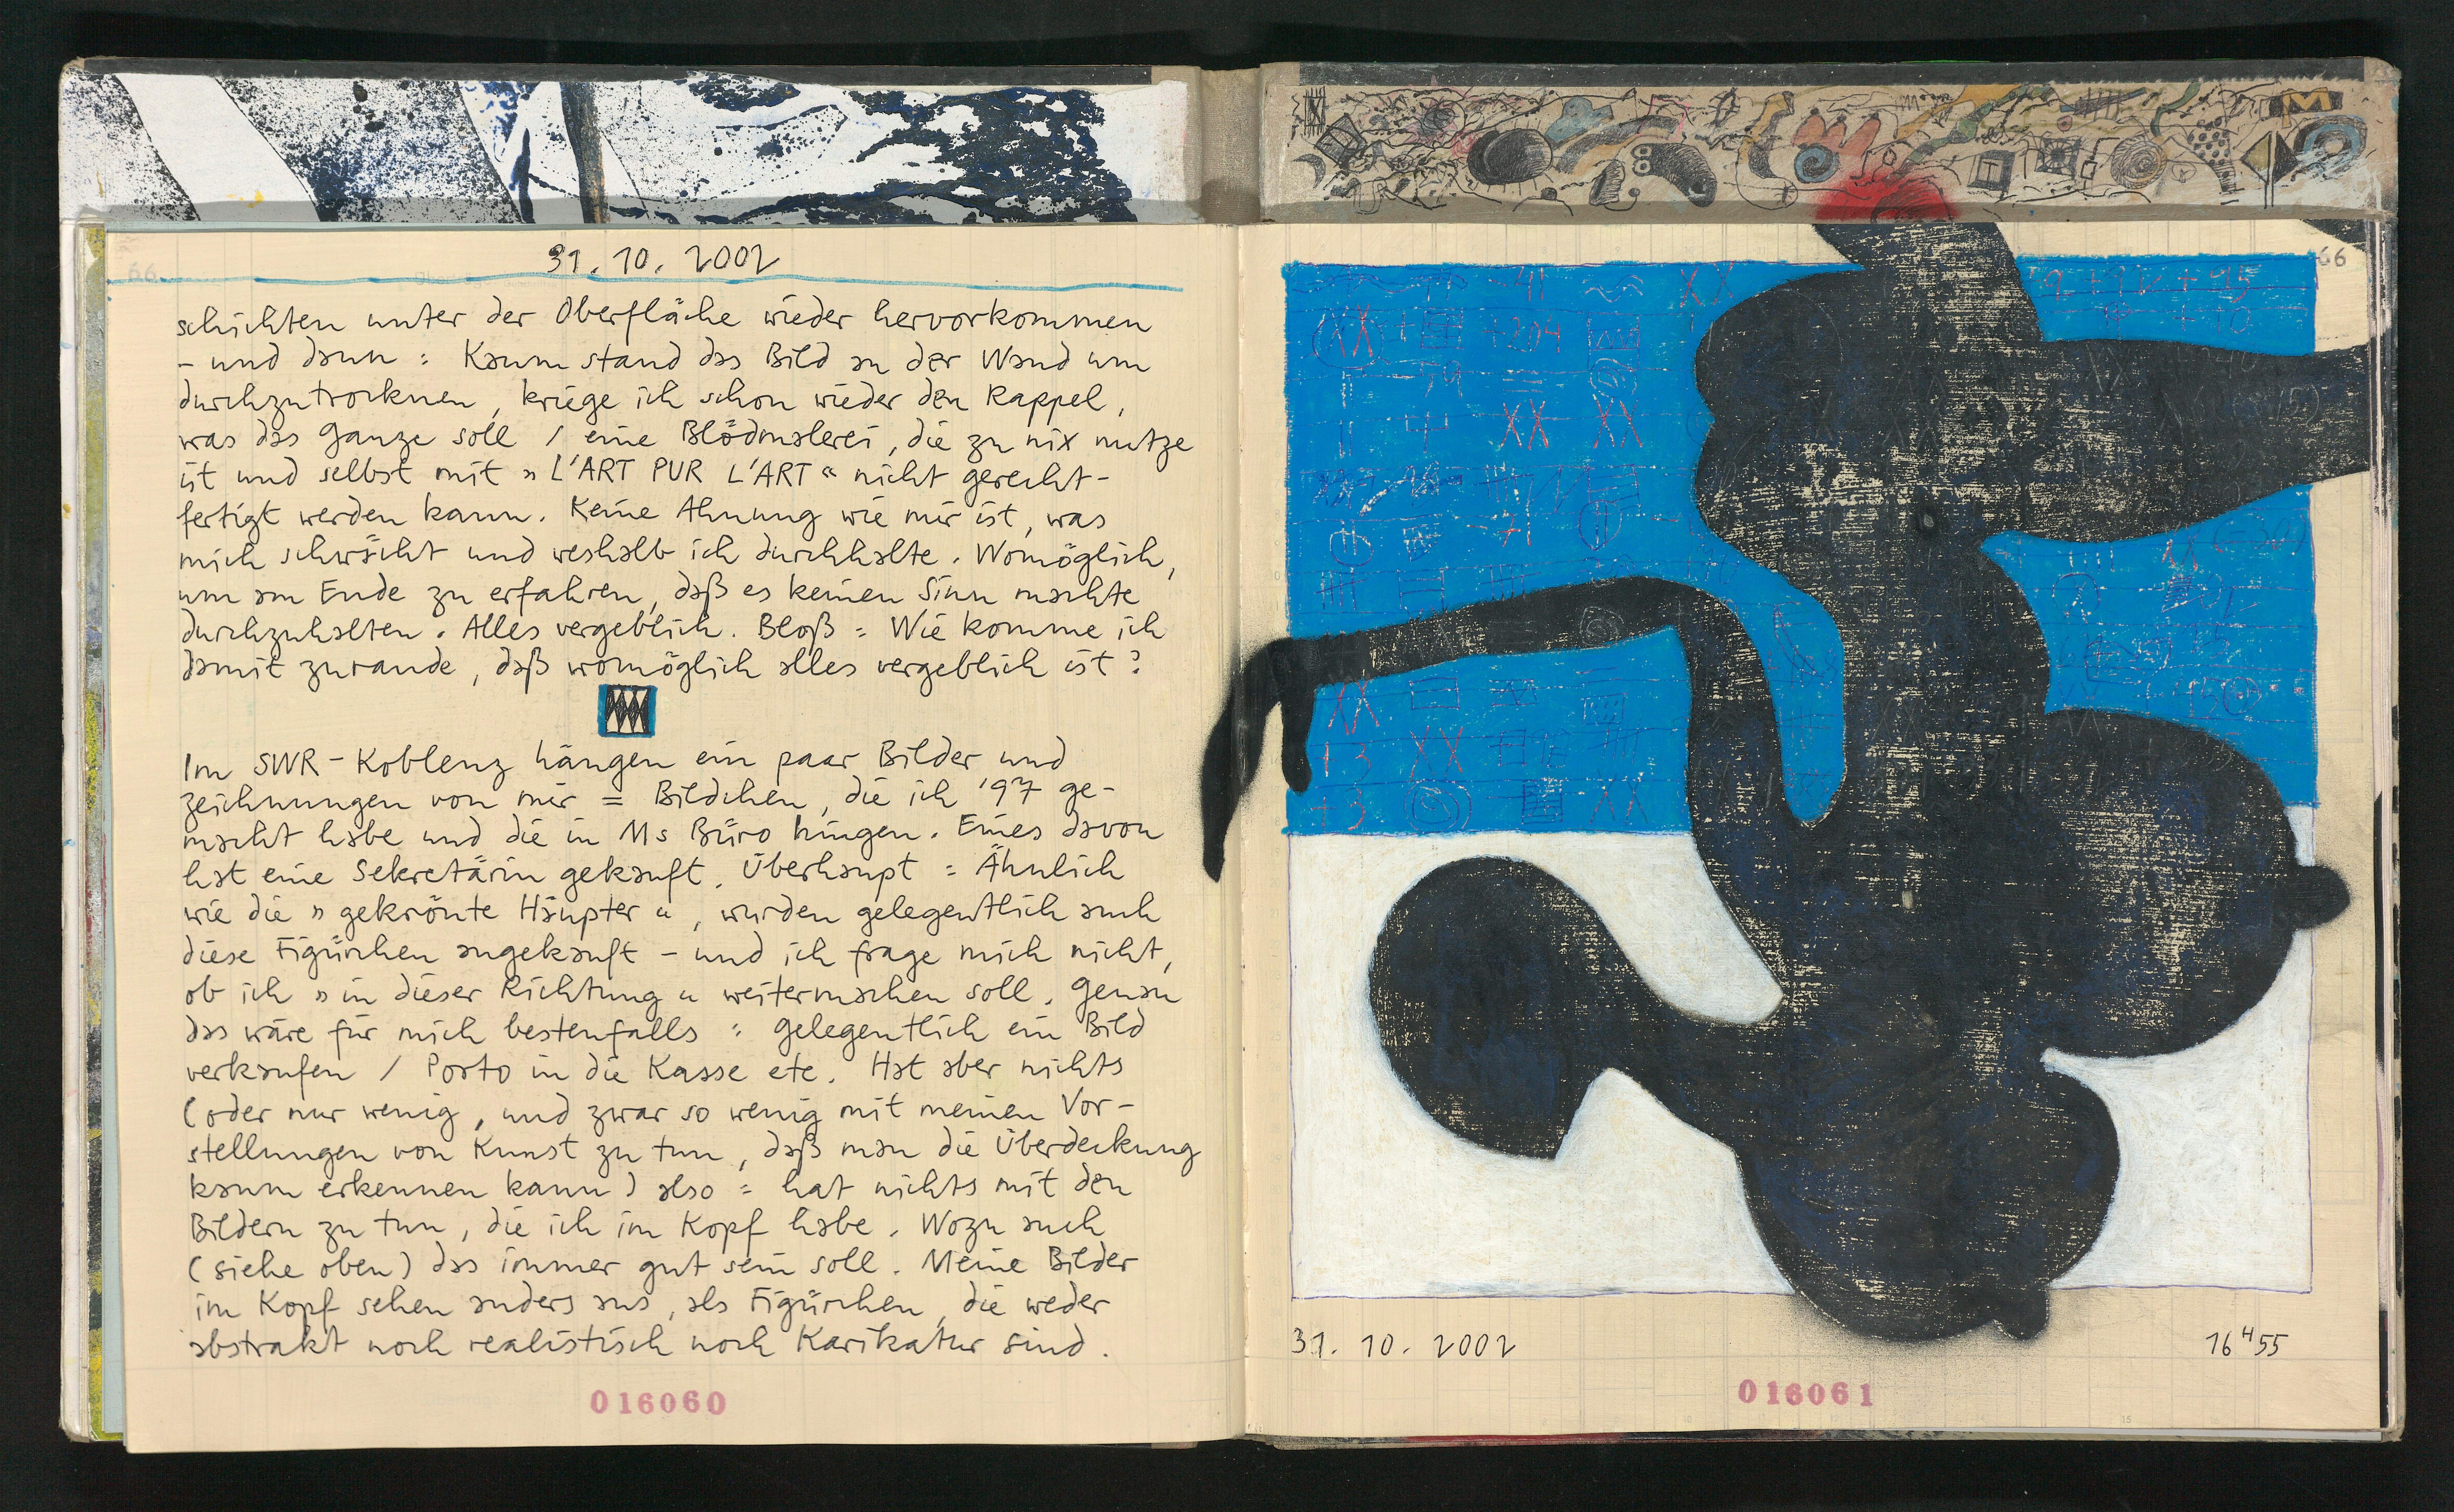 31. 10. 2002
schichten unter der Oberfläche wieder hervorkommen
- und dann : Kaum stand das Bild an der Wand um
durchzutrocknen, kriege ich schon wieder den Rappel,
was das Ganze soll / eine Blödmalerei, die zu nix nutze
ist und selbst mit » L'ART PUR L'ART « nicht gerecht-
fertigt werden kann. Keine Ahnung wie mir ist, was
mich schwächt und weshalb ich durchhalte. Womöglich,
um am Ende zu erfahren, daß es keinen Sinn machte
durchzuhalten. Alles vergeblich. Bloß = Wie komme ich
damit zurande, daß womöglich alles vergeblich ist?
Im SWR-Koblenz hängen ein paar Bilder und
Zeichnungen von mir = Bildchen, die ich '97 ge-
macht habe und die in Ms Büro hingen. Eines davon
hat eine Sekretärin gekauft. Überhaupt = Ähnlich
wie die » gekrönte Häupter «, wurden gelegentlich auch
diese Figürchen angekauft - und ich frage mich nicht,
ob ich » in dieser Richtung « weitermachen soll. Genau
das wäre für mich bestenfalls : gelegentlich ein Bild
verkaufen / Porto in die Kasse etc. Hat aber nichts
(oder nur wenig, und zwar so wenig mit meinen Vor-
stellungen von Kunst zu tun, daß man die Überdeckung
kaum erkennen kann) also = hat nichts mit den
Bildern zu tun, die ich im Kopf habe. Wozu auch
(siehe oben) das immer gut sein soll. Meine Bilder
im Kopf sehen anders aus, als Figürchen, die weder
abstrakt noch realistisch noch Karikatur sind.
016060
66
XX
XX + +204
XX XX
XX
+3 XX
+3 XX
31. 10. 2002 16H55
016061